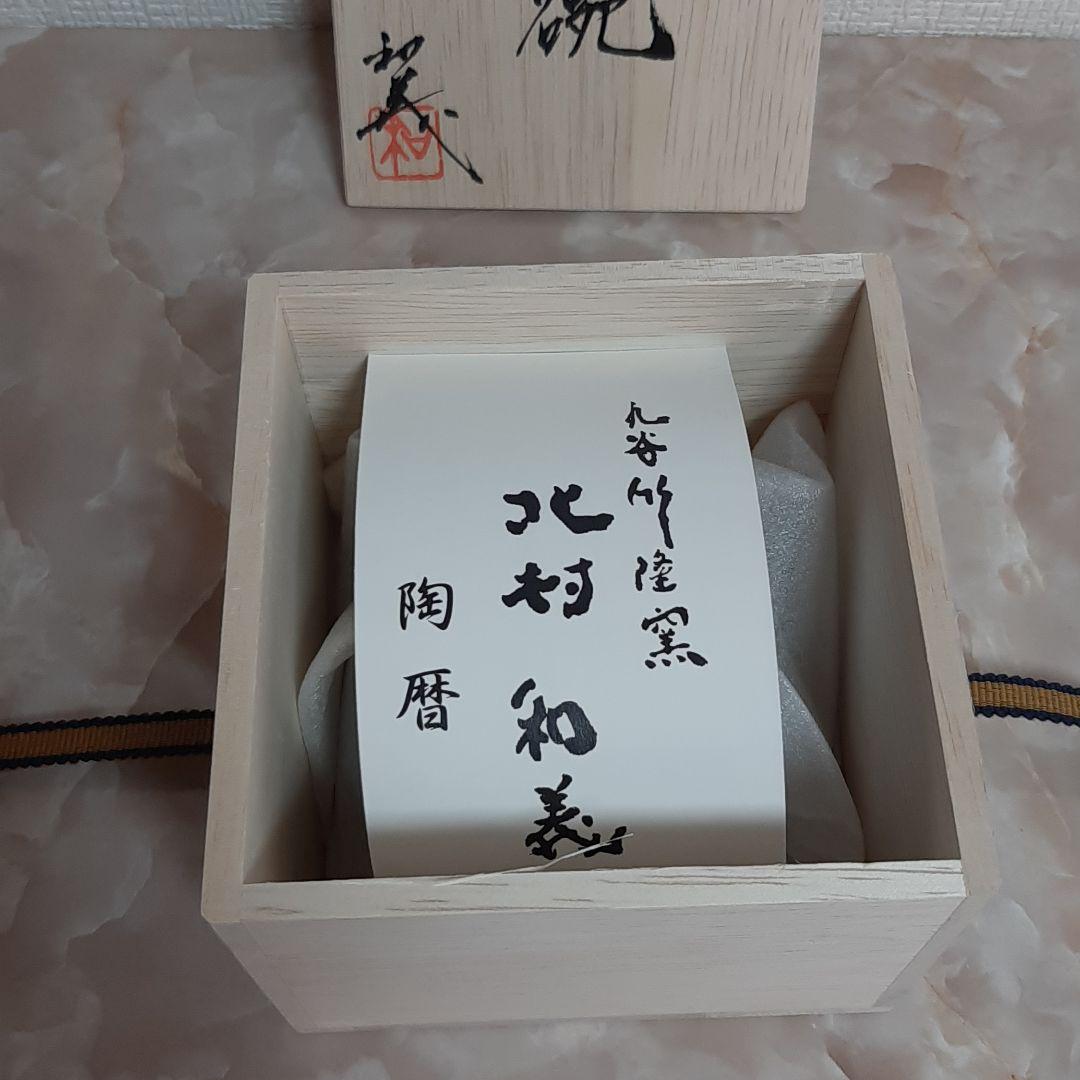 碗
和義
和
九谷竹隆窯
北村和義
陶暦